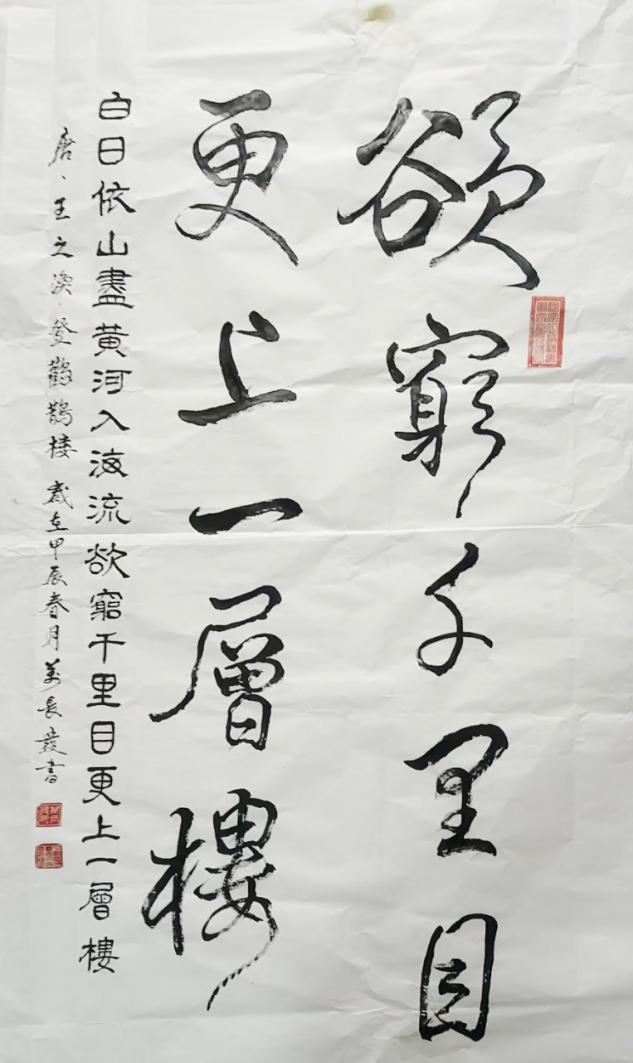 欲窮千里目
更上一層樓
白日依山盡黄河入海流欲窮千里目更上一層樓
唐、王之渙登鸛鵲樓 歲在甲辰春月萬長發書